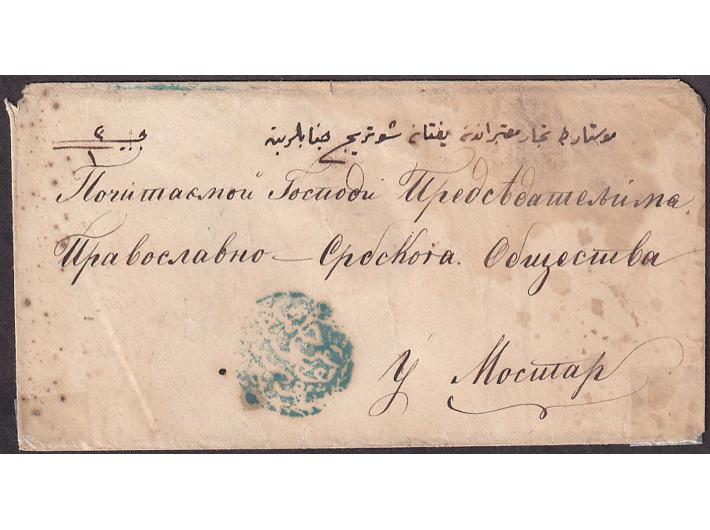 موستارده تجار معتبراندن يفتان شوتريج جنابلرينه
Почитаемой Господѣ Предсѣдательима
Православно — Србскога Общества
У Мостар